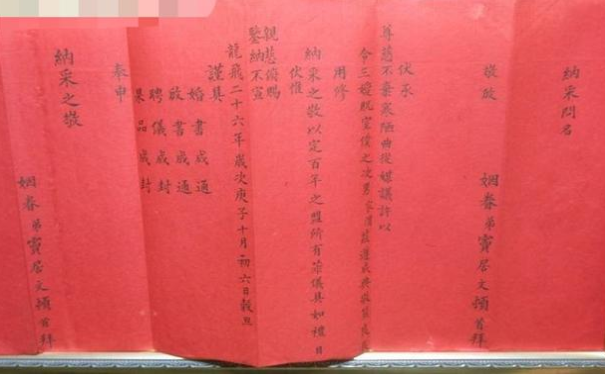 納采問名
敬啟
姻眷弟竇居文頓首拜
伏承
尊慈不棄寒陋曲從媒議許以
令三媛貺室僕之次男
用修
納采之敬以定百年之盟所有菜儀具如禮目
伏惟
親慈俯賜
鑒納不宣
龍飛二十六年歲次庚子十月初六日穀旦
謹具
婚書成通
啟書成通
聘儀成封
果品成封
奉申
納采之敬
姻眷弟竇居文頓首拜